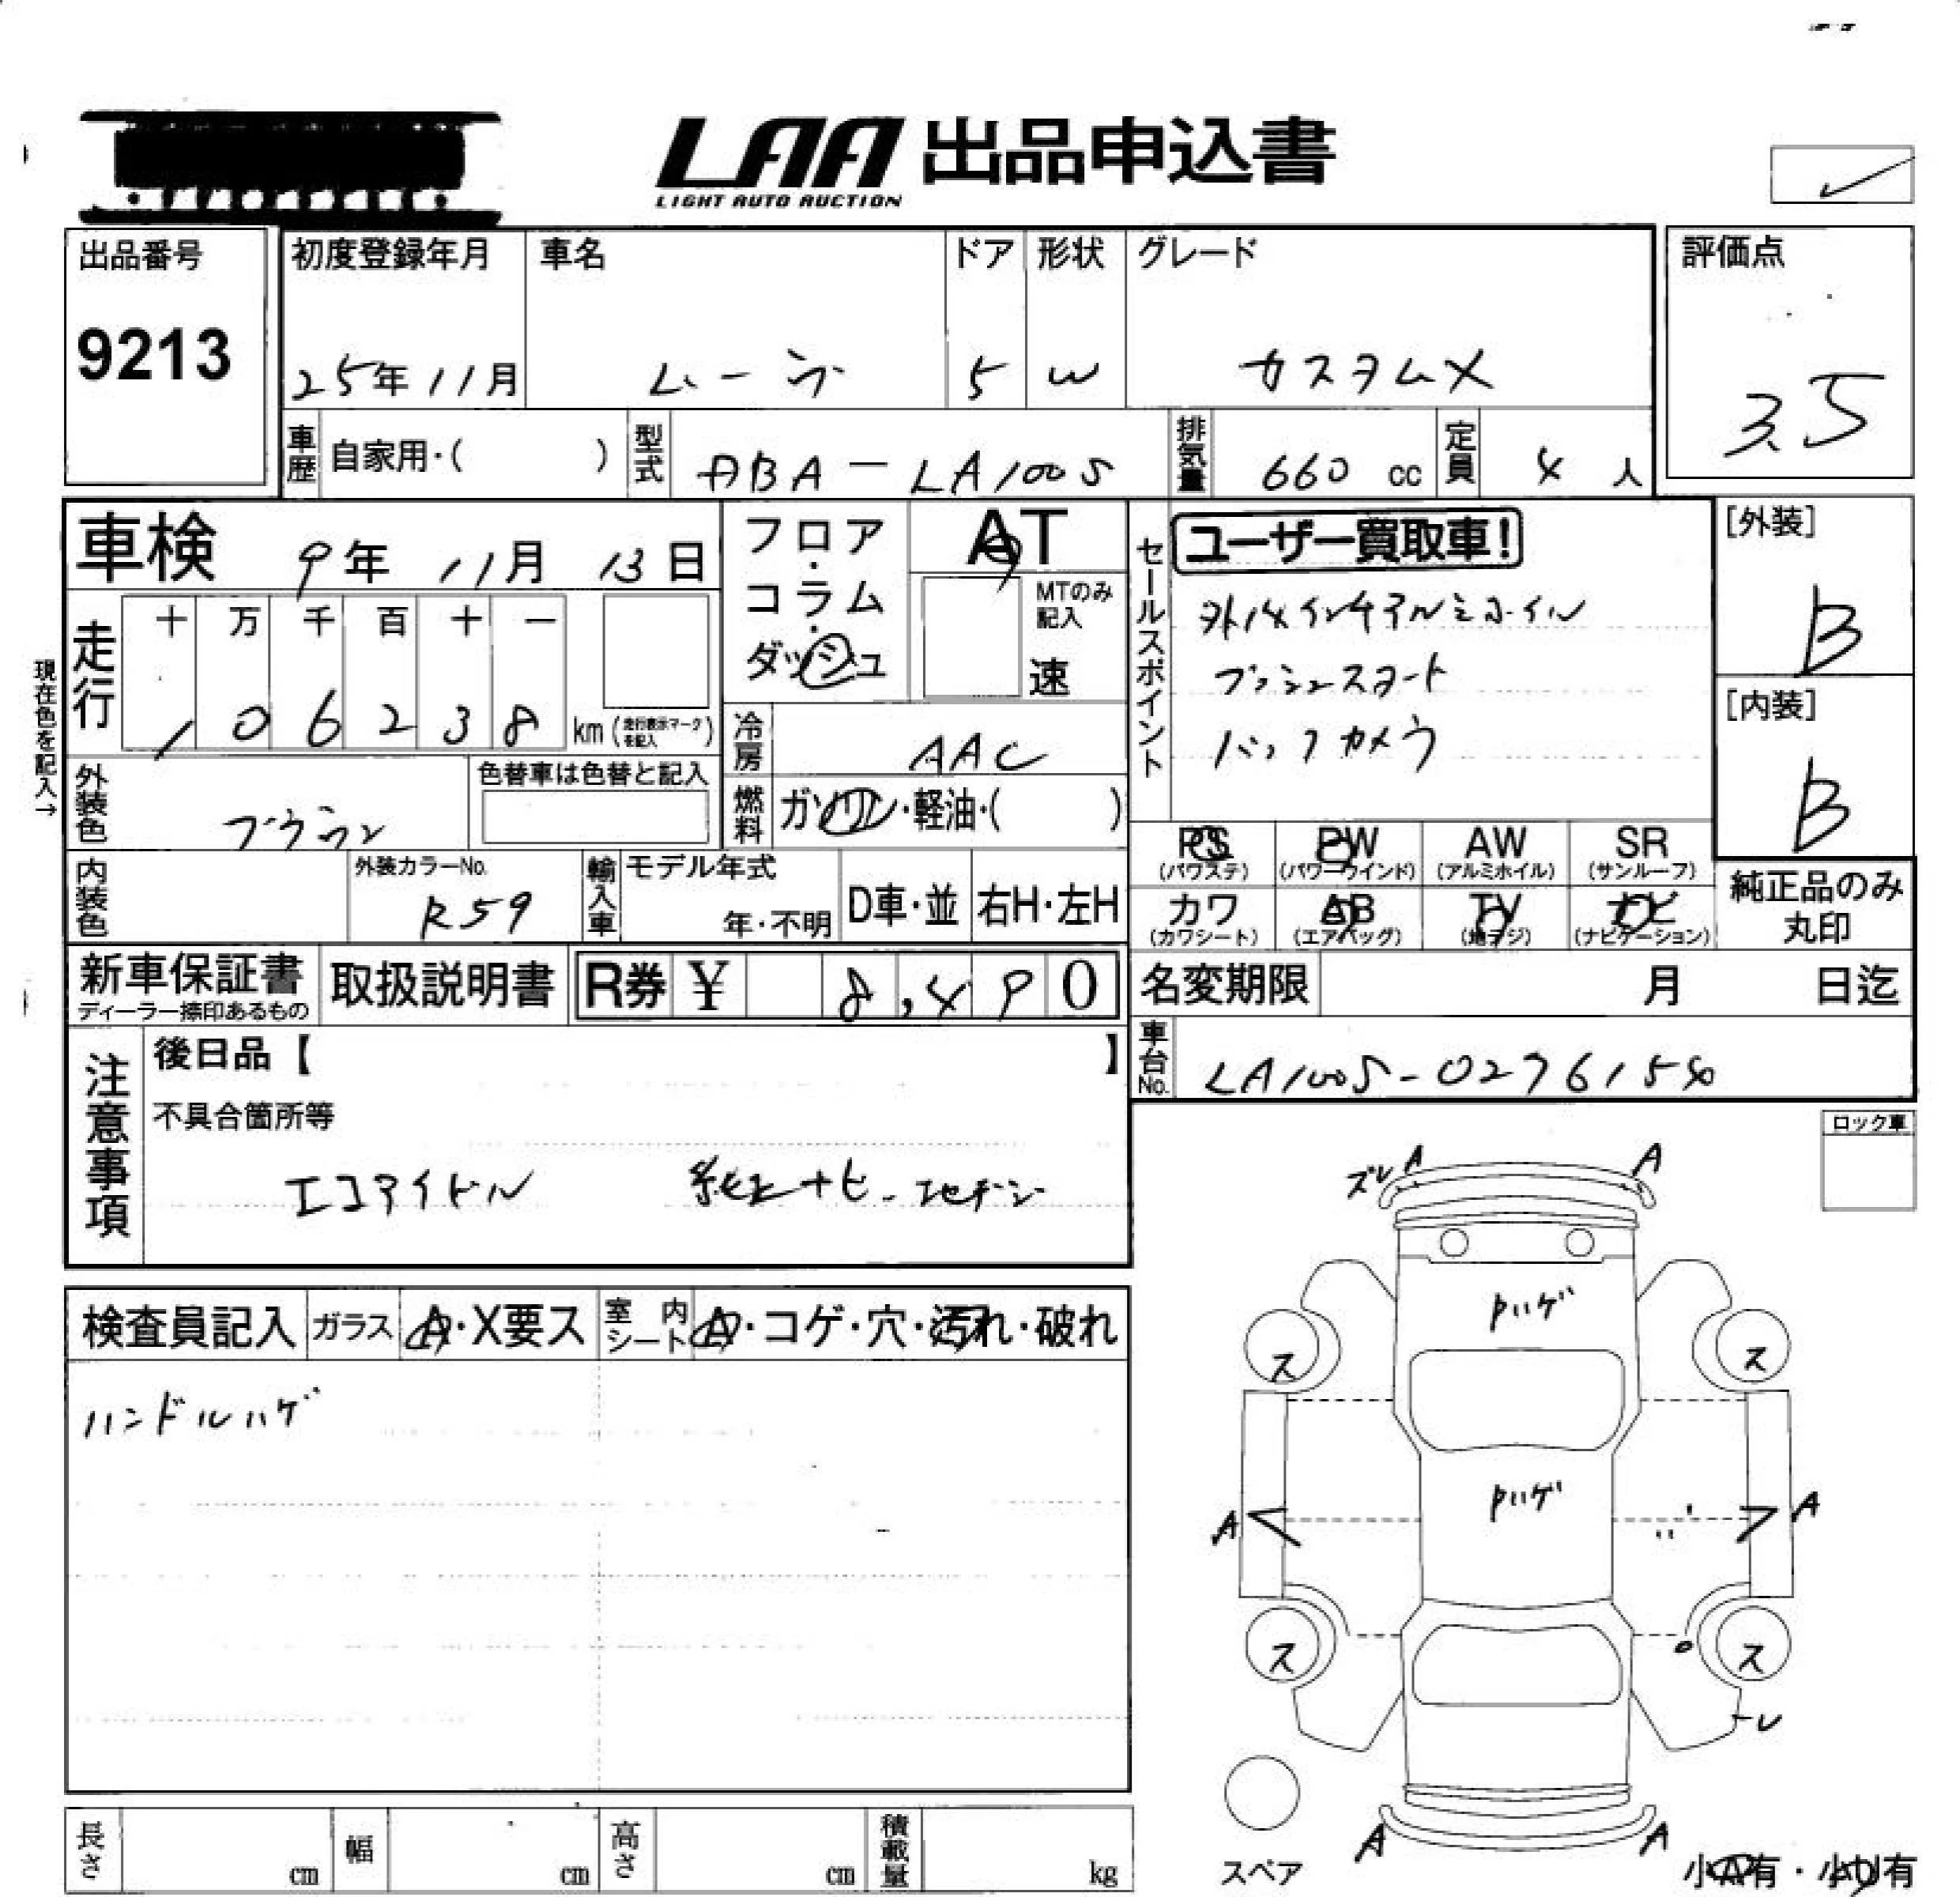 LAA 出品申込書
LIGHT AUTO AUCTION
出品番号
9213
初度登録年月
25年11月
車名
ムーヴ
ドア
5
形状
W
グレード
カスタムX
評価点
3.5
車歴 自家用・( )
型式 ABA-LA100S
排気量 660 cc
定員 4 人
車検 9年 11月 13日
フロア・コラム・ダッシュ
AT
MTのみ記入
速
セールスポイント
ユーザー買取車!
外14インチアルミホイル
プッシュスタート
バックカメラ
[外装]
B
[内装]
B
現在色を記入→
走行
十 万 千 百 十 一
1 0 6 2 3 8 km (走行表示マークを記入)
冷房 AAC
燃料 ガソリン・軽油・( )
外装色 ブラウン
色替車は色替と記入
内装色
外装カラーNo.
R59
輸入車
モデル年式
年・不明
D車・並
右H・左H
PS (パワステ)
PW (パワーウインド)
AW (アルミホイル)
SR (サンルーフ)
カワ (カワシート)
AB (エアバッグ)
TV (地デジ)
ナビ (ナビゲーション)
純正品のみ丸印
新車保証書
ディーラー捺印あるもの
取扱説明書
R券 ¥ 8,490
名変期限 月 日迄
車台No. LA100S-0276154
注意事項
後日品【 】
不具合箇所等
エコアイドル 純正ナビ
ロック車
検査員記入
ガラス A・X要ス
室内シート A・コゲ・穴・汚れ・破れ
ハンドルハゲ
ズレ A A
Pハゲ
ス ス
Pハゲ
A A
ス ス
A A
スペア
小A有・小U有
長さ cm
幅 cm
高さ cm
積載量 kg